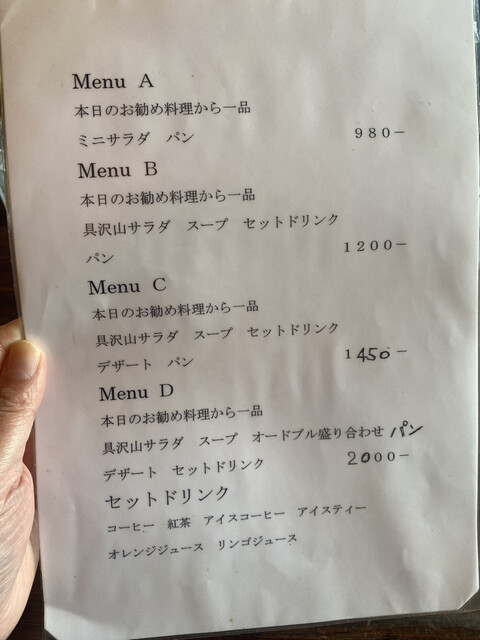 Menu A
本日のお勧め料理から一品
ミニサラダ パン 980－
Menu B
本日のお勧め料理から一品
具沢山サラダ スープ セットドリンク
パン 1200－
Menu C
本日のお勧め料理から一品
具沢山サラダ スープ セットドリンク
デザート パン 1450－
Menu D
本日のお勧め料理から一品
具沢山サラダ スープ オードブル盛り合わせ パン
デザート セットドリンク 2000－
セットドリンク
コーヒー 紅茶 アイスコーヒー アイスティー
オレンジジュース リンゴジュース